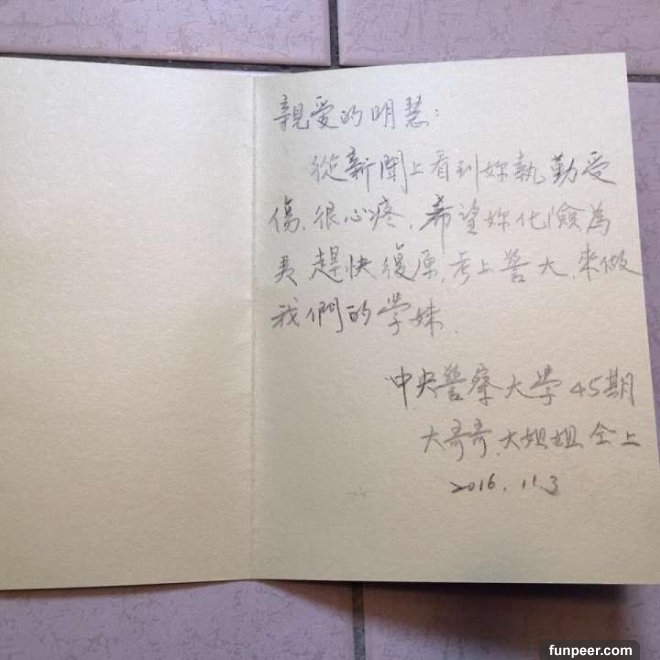 親愛的明慧:
從新聞上看到妳執勤受
傷,很心疼,希望妳化險為
夷趕快復原,考上警大,來做
我們的學妹.
中央警察大學45期
大哥哥、大姐姐仝上
2016.11.3
funpeer.com